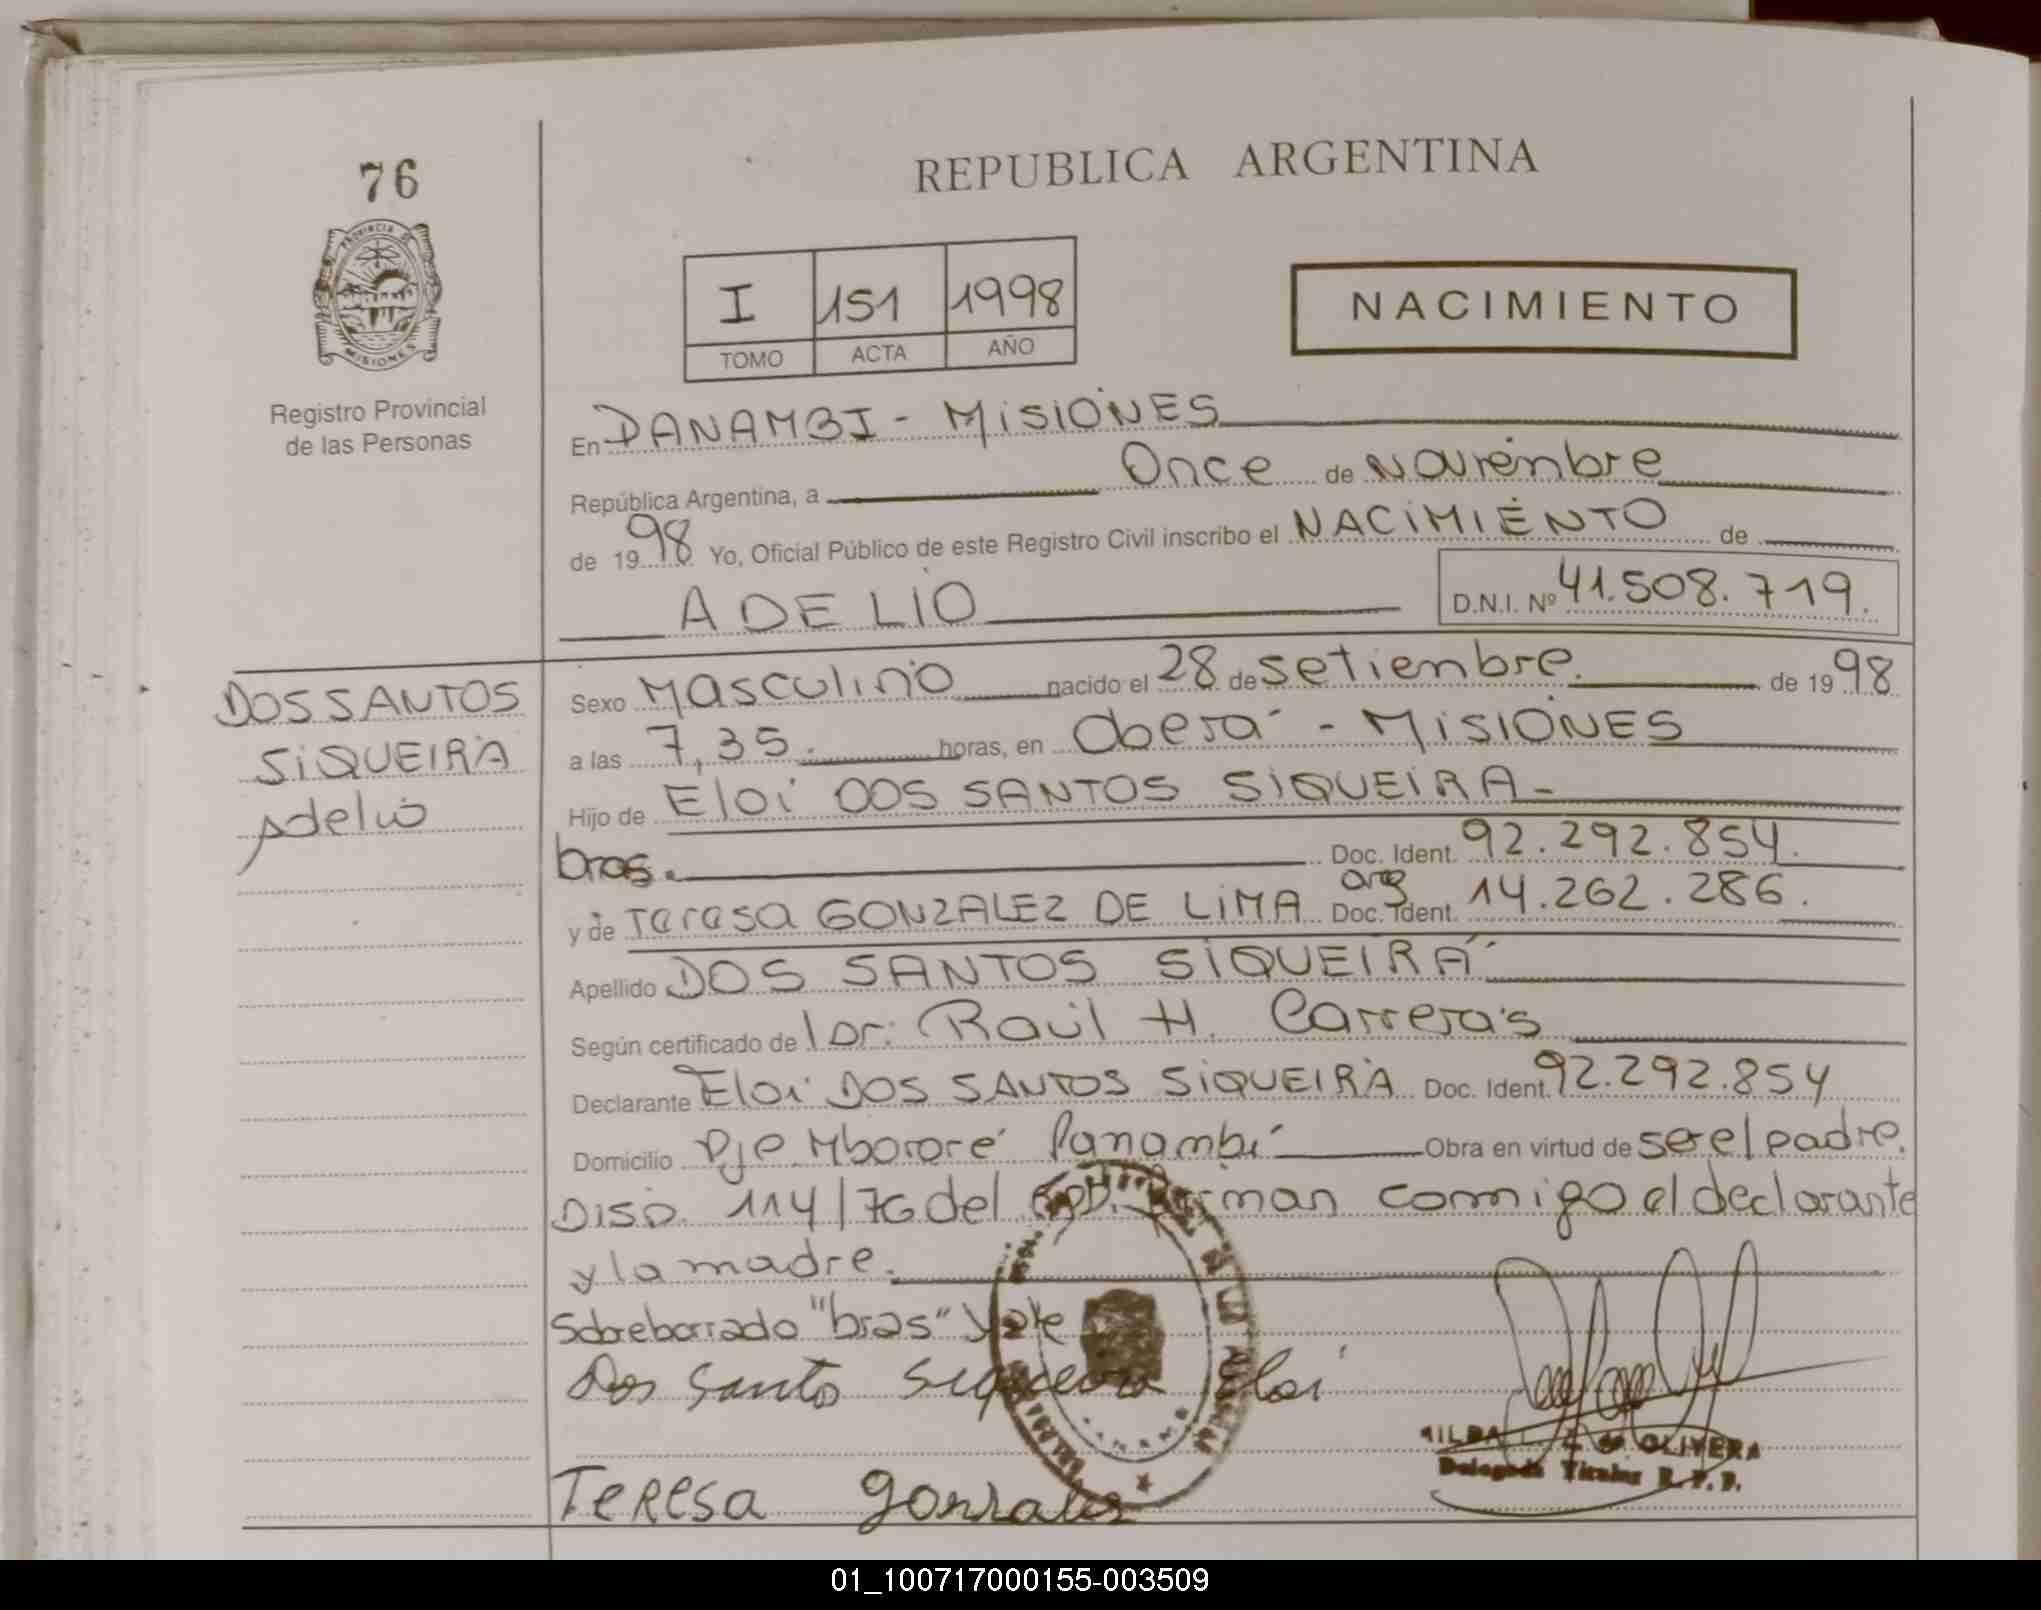 76
REPUBLICA ARGENTINA
PROVINCIA DE
MISIONES
Registro Provincial
de las Personas
I 151 1998
TOMO ACTA AÑO
NACIMIENTO
En PANAMBI - MISIONES
República Argentina, a Once de Noviembre
de 19 98 Yo, Oficial Público de este Registro Civil inscribo el NACIMIENTO de
ADELIO D.N.I. Nº 41.508.719.
DOS SANTOS
SIQUEIRA
Adelio
Sexo Masculino nacido el 28 de setiembre. de 19 98
a las 7,35. horas, en Oberá - MISIONES
Hijo de Eloi DOS SANTOS SIQUEIRA -
bras. Doc. Ident. 92.292.854.
y de Teresa GONZALEZ DE LIMA arg Doc. Ident. 14.262.286.
Apellido DOS SANTOS SIQUEIRA
Según certificado de Dr: Raúl H. Carreras
Declarante Eloi DOS SANTOS SIQUEIRA Doc. Ident. 92.292.854
Domicilio Pje Mbororé Panambí Obra en virtud de ser el padre.
Disp. 114/76 del Firman comigo el declarante
y la madre.
Sobreborrado "bras" Vale
Dos Santos Siqueira Eloi
Teresa Gonzalez
OLIVERA
Delegada Titular R.P.P.
01_100717000155-003509